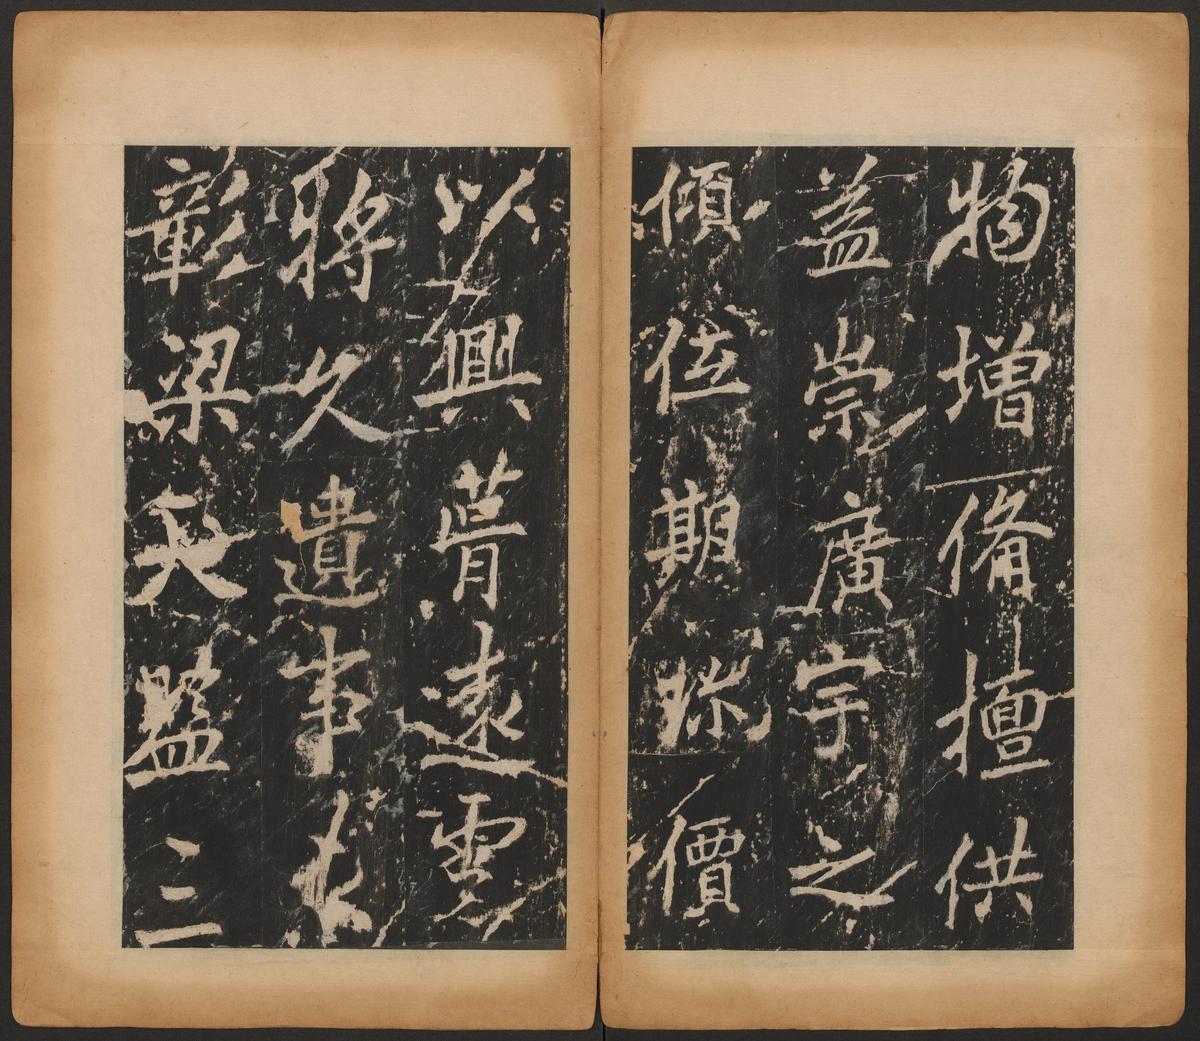 物增備檀供
益崇廣宇之
傾位期珎價
以興遠雲
將久遺事未
彰梁長監三